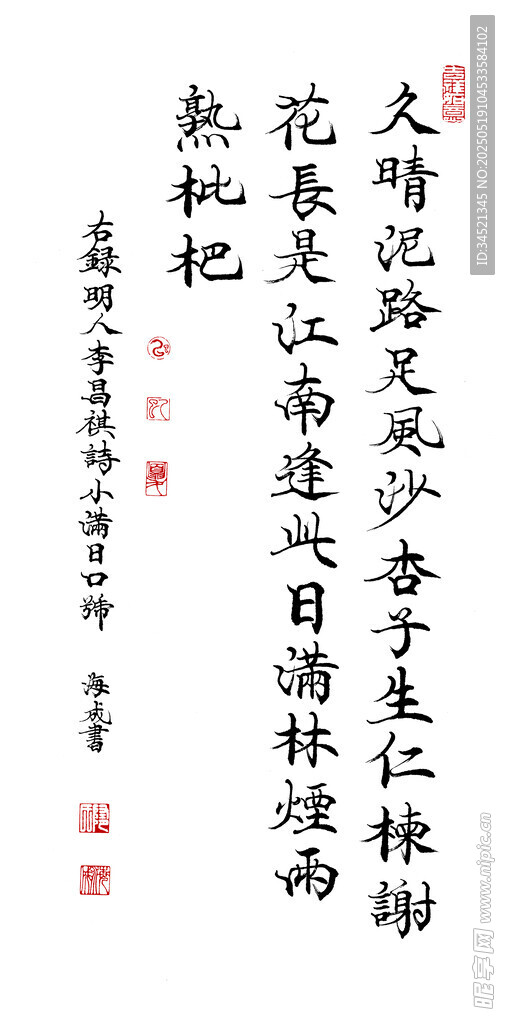 久晴泥路足風沙杏子生仁楝謝
花長是江南逢此日滿林煙雨
熟枇杷
右録明人李昌祺詩小滿日口號
海成書
吉祥如意
夏
ID:34521345 NO:20250519104533584102
昵享网 www.nipic.cn